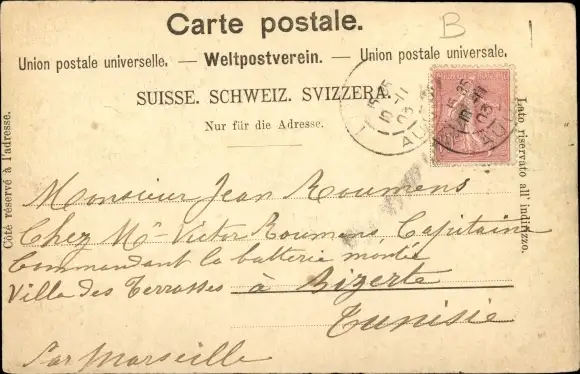 B
Carte postale.
Union postale universelle. — Weltpostverein. — Union postale universale.
SUISSE. SCHWEIZ. SVIZZERA.
Nur für die Adresse.
Côté réservé à l'adresse.
Lato riservato all' indirizzo.
Monsieur Jean Roumens
Chez Mr Victor Roumens, Capitaine
Commandant la batterie montée
Ville des Terrasses à Bizerte
Tunisie
Par Marseille